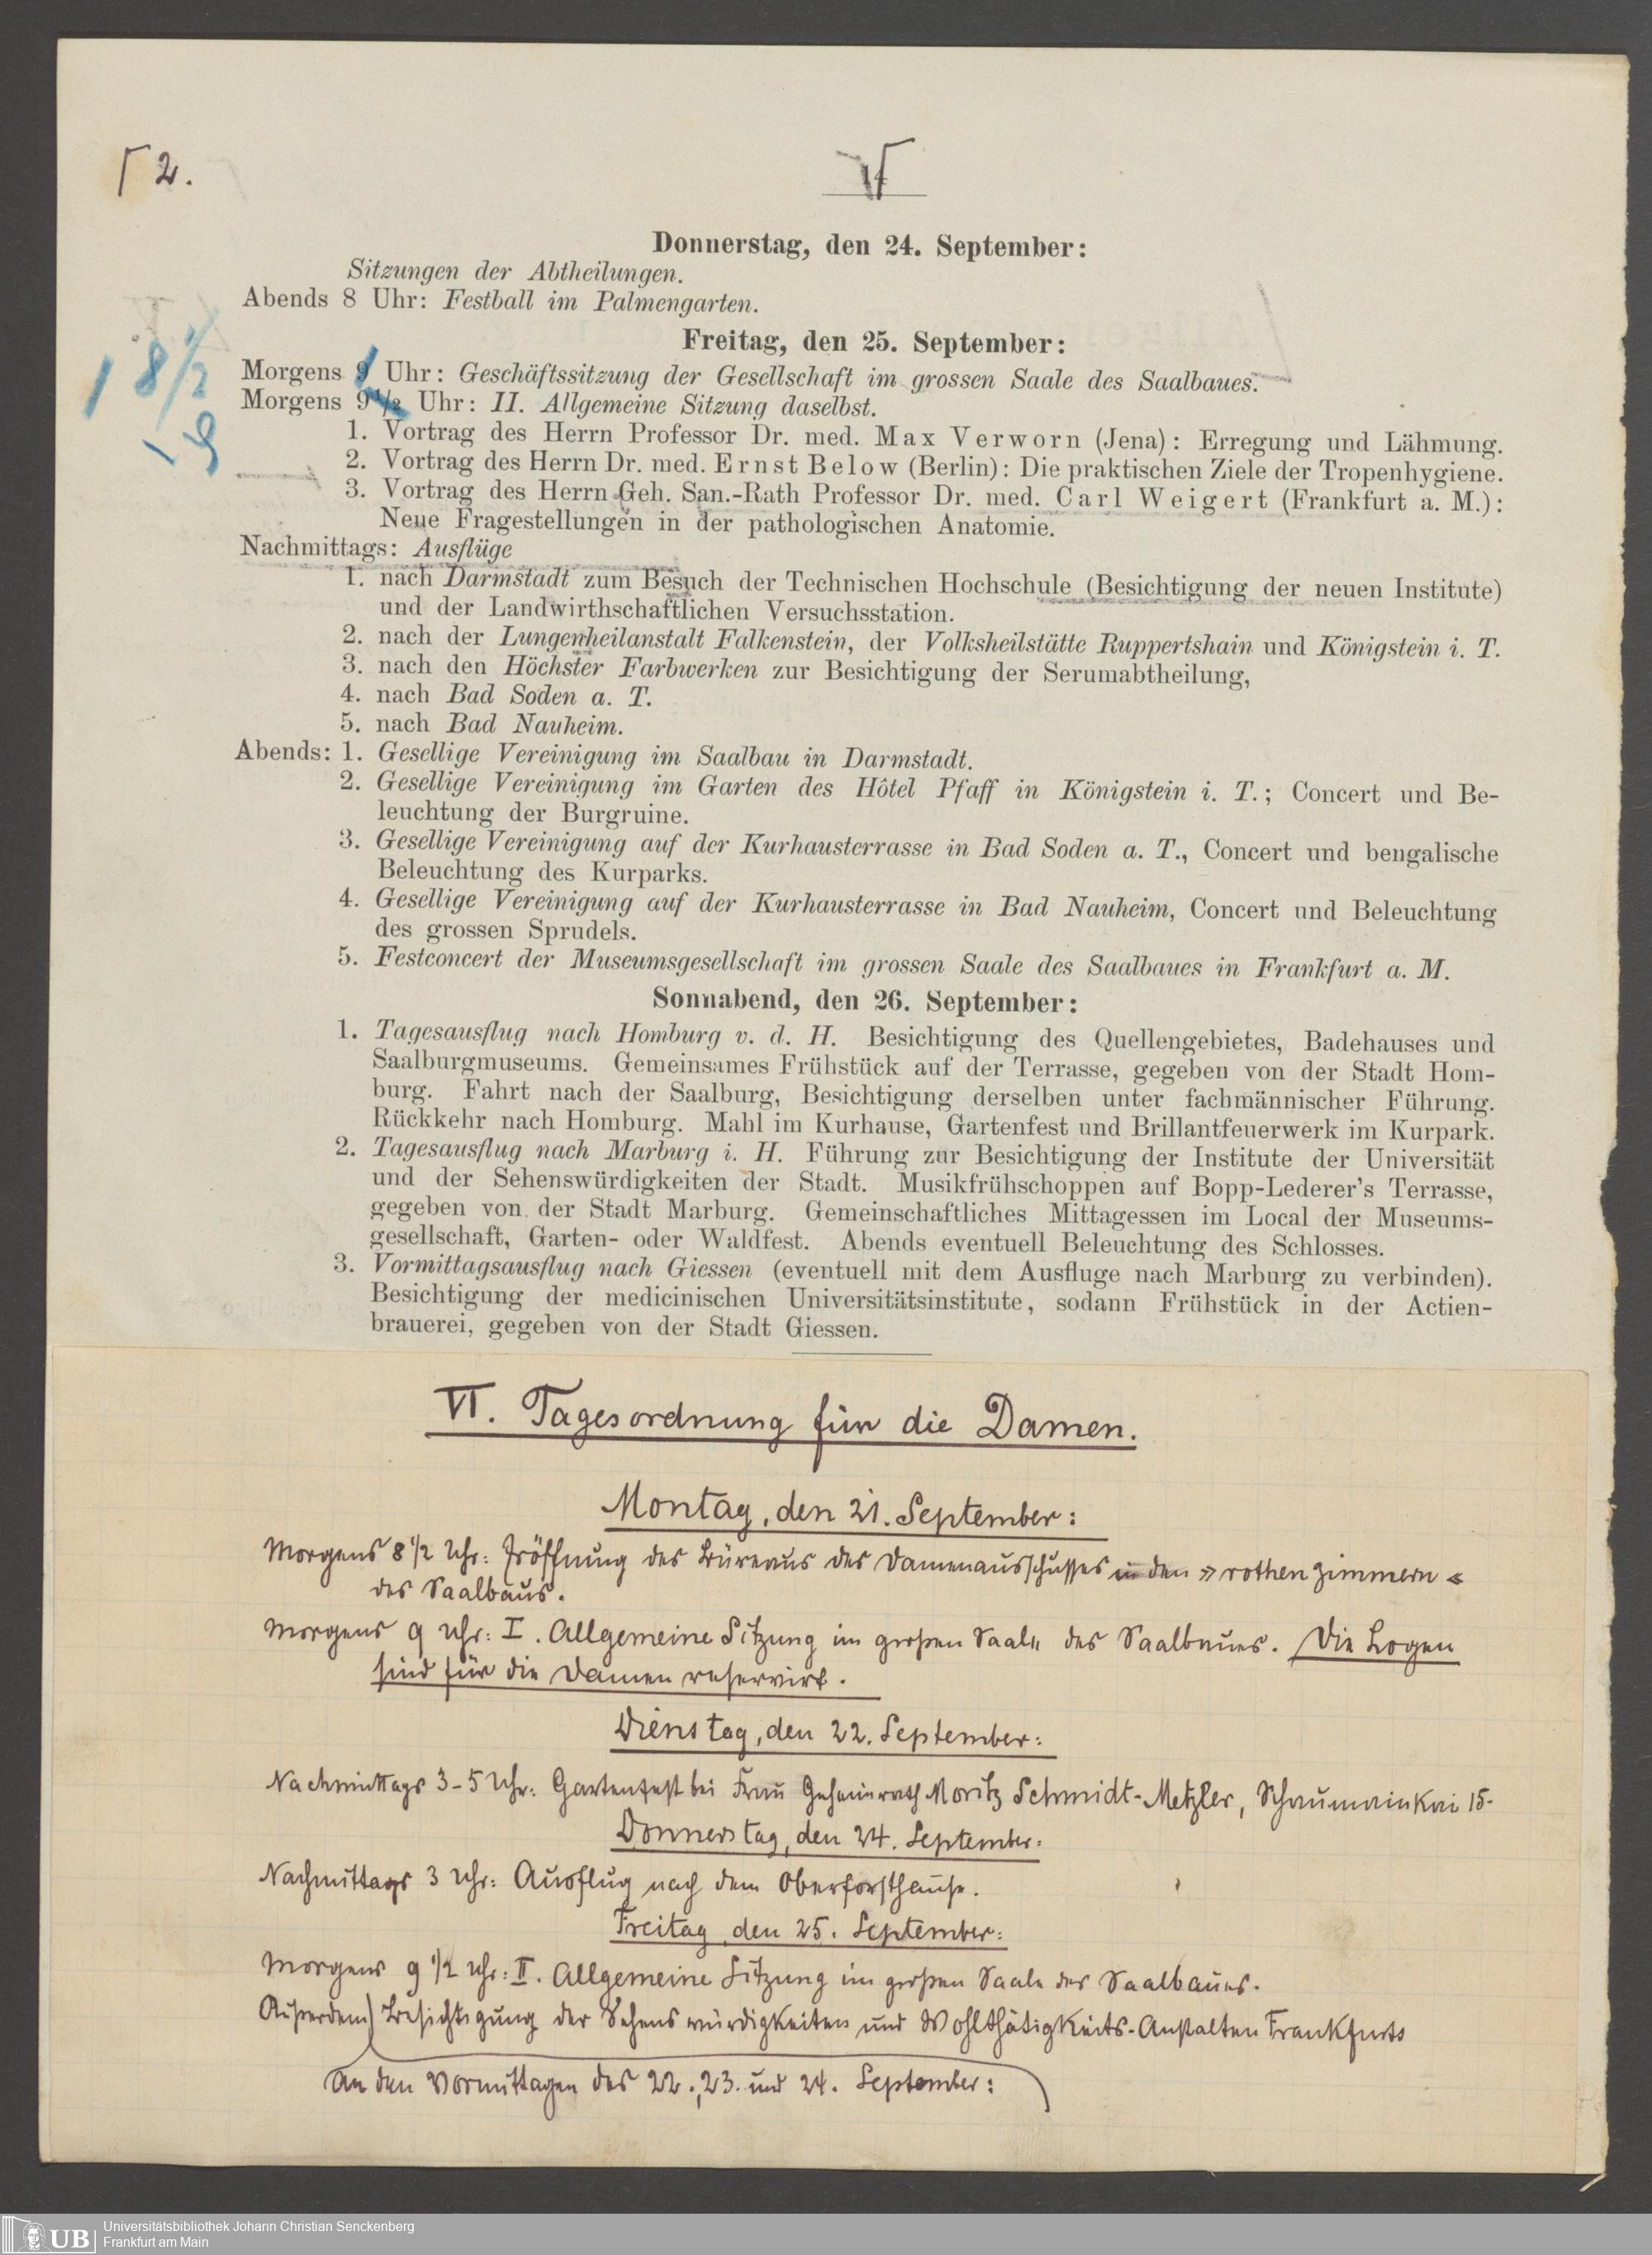 ⌈ 2.
Donnerstag, den 24. September:
Sitzungen der Abtheilungen.
Abends 8 Uhr: Festball im Palmengarten.
Freitag, den 25. September:
1 8 1/2
Morgens 9 Uhr: Geschäftssitzung der Gesellschaft im grossen Saale des Saalbaues.
Morgens 9 1/2 Uhr: II. Allgemeine Sitzung daselbst.
9
1. Vortrag des Herrn Professor Dr. med. Max Verworn (Jena): Erregung und Lähmung.
2. Vortrag des Herrn Dr. med. Ernst Below (Berlin): Die praktischen Ziele der Tropenhygiene.
3. Vortrag des Herrn Geh. San.-Rath Professor Dr. med. Carl Weigert (Frankfurt a. M.):
Neue Fragestellungen in der pathologischen Anatomie.
Nachmittags: Ausflüge
1. nach Darmstadt zum Besuch der Technischen Hochschule (Besichtigung der neuen Institute)
und der Landwirthschaftlichen Versuchsstation.
2. nach der Lungenheilanstalt Falkenstein, der Volksheilstätte Ruppertshain und Königstein i. T.
3. nach den Höchster Farbwerken zur Besichtigung der Serumabtheilung,
4. nach Bad Soden a. T.
5. nach Bad Nauheim.
Abends: 1. Gesellige Vereinigung im Saalbau in Darmstadt.
2. Gesellige Vereinigung im Garten des Hôtel Pfaff in Königstein i. T.; Concert und Be-
leuchtung der Burgruine.
3. Gesellige Vereinigung auf der Kurhausterrasse in Bad Soden a. T., Concert und bengalische
Beleuchtung des Kurparks.
4. Gesellige Vereinigung auf der Kurhausterrasse in Bad Nauheim, Concert und Beleuchtung
des grossen Sprudels.
5. Festconcert der Museumsgesellschaft im grossen Saale des Saalbaues in Frankfurt a. M.
Sonnabend, den 26. September:
1. Tagesausflug nach Homburg v. d. H. Besichtigung des Quellengebietes, Badehauses und
Saalburgmuseums. Gemeinsames Frühstück auf der Terrasse, gegeben von der Stadt Hom-
burg. Fahrt nach der Saalburg, Besichtigung derselben unter fachmännischer Führung.
Rückkehr nach Homburg. Mahl im Kurhause, Gartenfest und Brillantfeuerwerk im Kurpark.
2. Tagesausflug nach Marburg i. H. Führung zur Besichtigung der Institute der Universität
und der Sehenswürdigkeiten der Stadt. Musikfrühschoppen auf Bopp-Lederer's Terrasse,
gegeben von der Stadt Marburg. Gemeinschaftliches Mittagessen im Local der Museums-
gesellschaft, Garten- oder Waldfest. Abends eventuell Beleuchtung des Schlosses.
3. Vormittagsausflug nach Giessen (eventuell mit dem Ausfluge nach Marburg zu verbinden).
Besichtigung der medicinischen Universitätsinstitute, sodann Frühstück in der Actien-
brauerei, gegeben von der Stadt Giessen.
VI. Tagesordnung für die Damen.
Montag, den 21. September:
Morgens 8 1/2 Uhr: Eröffnung des Büreaus des Damenausschusses in den »rothen Zimmern«
des Saalbaus.
Morgens 9 Uhr: I. Allgemeine Sitzung im großen Saale des Saalbaues. Die Logen
sind für die Damen reservirt.
Dienstag, den 22. September:
Nachmittags 3-5 Uhr: Gartenfest bei Frau Geheimrath Moritz Schmidt-Metzler, Schaumainkai 15.
Donnerstag, den 24. September:
Nachmittags 3 Uhr: Ausflug nach dem Oberforsthause.
Freitag, den 25. September:
Morgens 9 1/2 Uhr: II. Allgemeine Sitzung im großen Saale des Saalbaues.
Außerdem) Besichtigung der Sehenswürdigkeiten und Wohlthätigkeits-Anstalten Frankfurts
an den Vormittagen des 22., 23. und 24. September:
UB Universitätsbibliothek Johann Christian Senckenberg
Frankfurt am Main